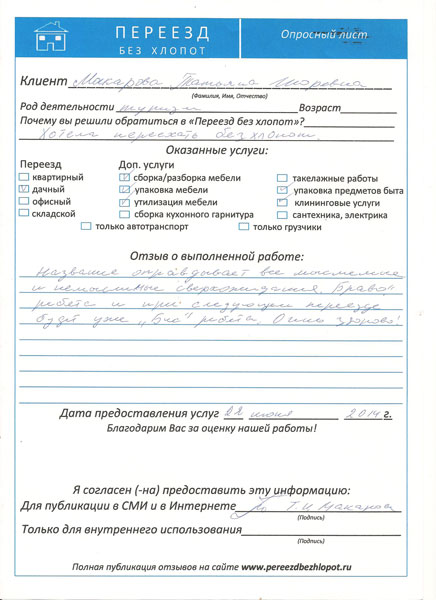 ПЕРЕЕЗД
БЕЗ ХЛОПОТ
Опросный лист
Клиент Макарова Татьяна Игоревна
(Фамилия, Имя, Отчество)
Род деятельности туризм Возраст
Почему вы решили обратиться в «Переезд без хлопот»?
Хотела переехать без хлопот.
Оказанные услуги:
Переезд Доп. услуги
квартирный сборка/разборка мебели такелажные работы
дачный упаковка мебели упаковка предметов быта
офисный утилизация мебели клининговые услуги
складской сборка кухонного гарнитура сантехника, электрика
только автотранспорт только грузчики
Отзыв о выполненной работе:
Название оправдывает все мыслимые
и немыслимые сверхожидания. Браво,
ребята и при следующем переезде
будет уже „Бис" ребята. Очень здорово!
Дата предоставления услуг 22 июня 2014 г.
Благодарим Вас за оценку нашей работы!
Я согласен (-на) предоставить эту информацию:
Для публикации в СМИ и в Интернете Т.И Макарова
(Подпись)
Только для внутреннего использования
(Подпись)
Полная публикация отзывов на сайте www.pereezdbezhlopot.ru